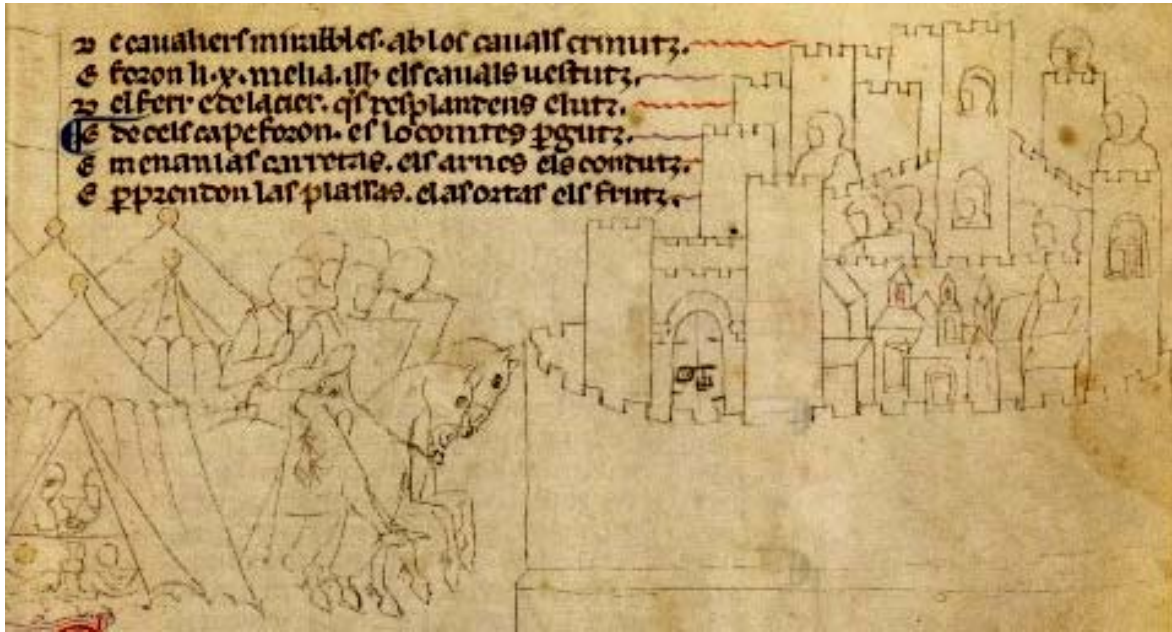 D e cavaliers mirables. ab los cavals crinutz.
E foron li .x. melia. ab els cavals vestutz.
D el ferr e de lacier. q̃s resplandens e lutz.
E de cels cape foron. es lo comtes ꝑgutz.
E menan las carretas. els arnes els condutz.
E ꝑprendon las plassas. e las ortas els frutz.